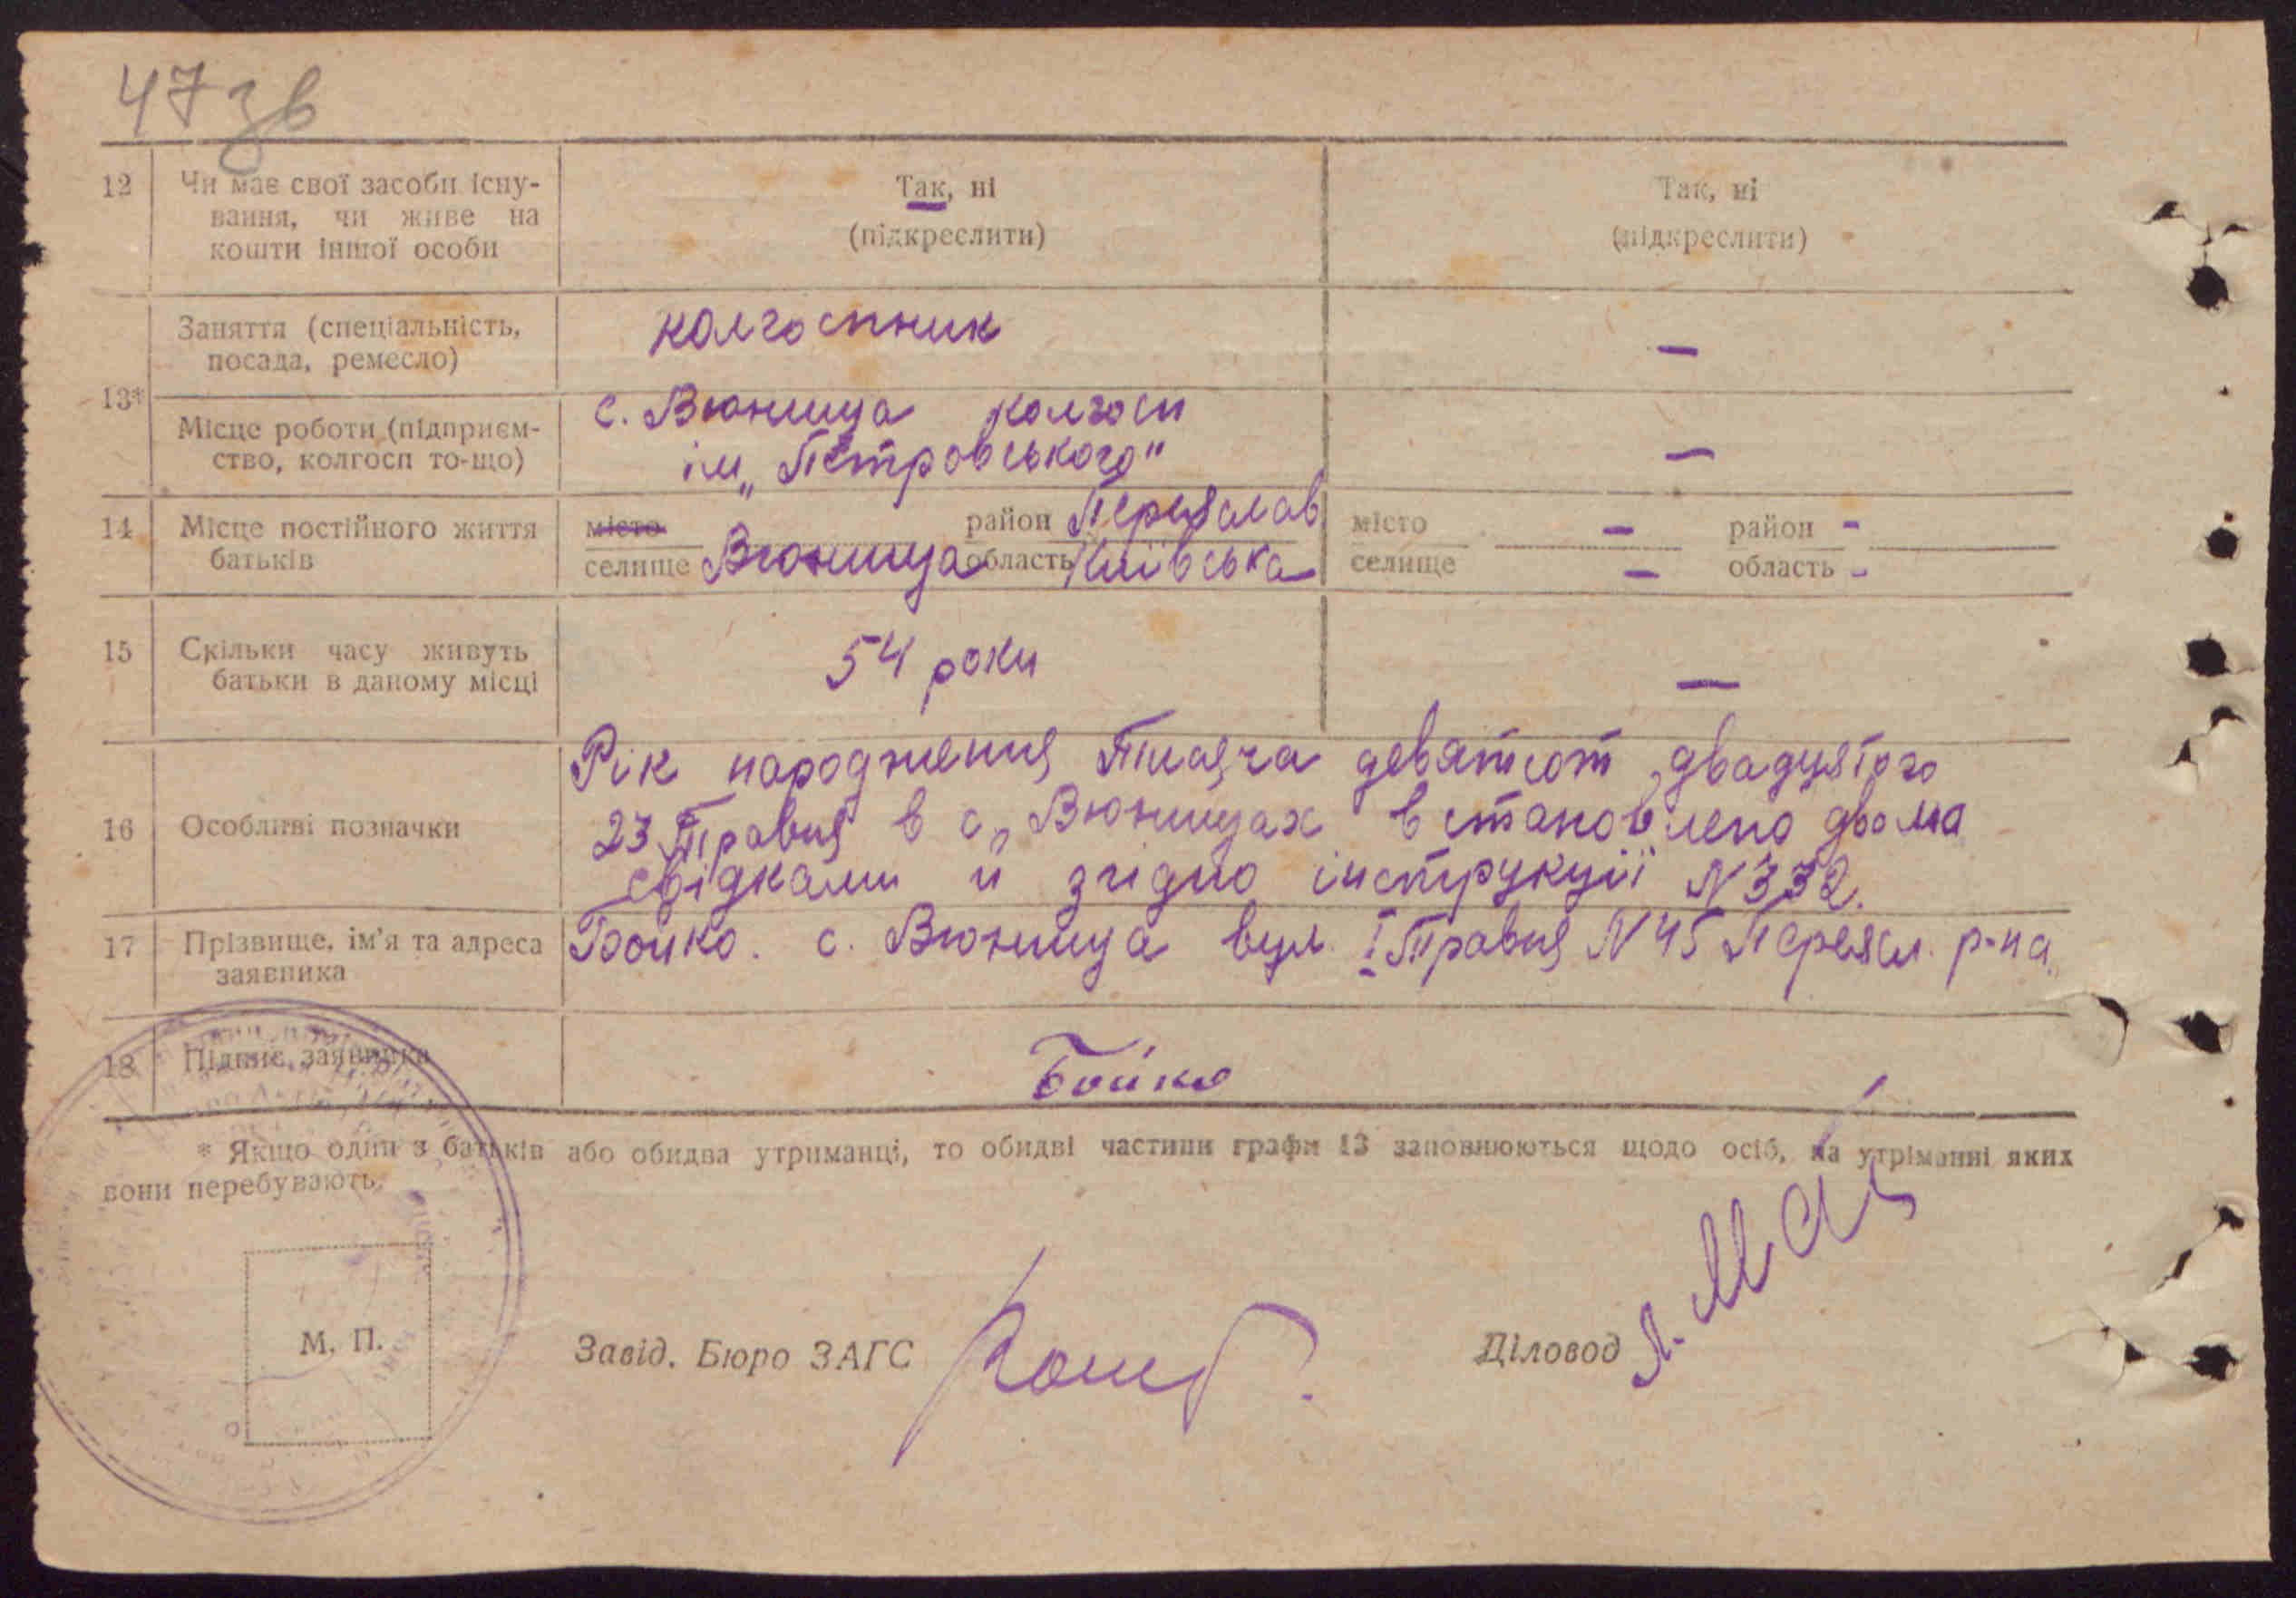 47 зв
12 Чи має свої засоби існу- Так, ні Так, ні
вання, чи живе на (підкреслити) (підкреслити)
кошти іншої особи
Заняття (спеціальність, колгоспник —
посада, ремесло)
13*
Місце роботи (підприєм- с. Вюнища колгосп —
ство, колгосп то-що) ім „Петровського"
14 Місце постійного життя місто район Переяслав місто — район -
батьків селище Вюнища область Київська селище — область -
15 Скільки часу живуть 54 роки —
батьки в даному місці
Рік народження Тисяча девятсот двадцятого
16 Особливі позначки 23 Травня в с. Вюнищах встановлено двома
свідками й згідно інструкції N 332.
17 Прізвище, ім'я та адреса Бойко. с. Вюнища вул. І Травня N 45 Переясл. р-на.
заявника
18 Підпис заявника Бойко
* Якщо один з батьків або обидва утриманці, то обидві частини графи 13 заповнюються щодо осіб, на утріманні яких
вони перебувають.
М. П. Завід. Бюро ЗАГС Діловод